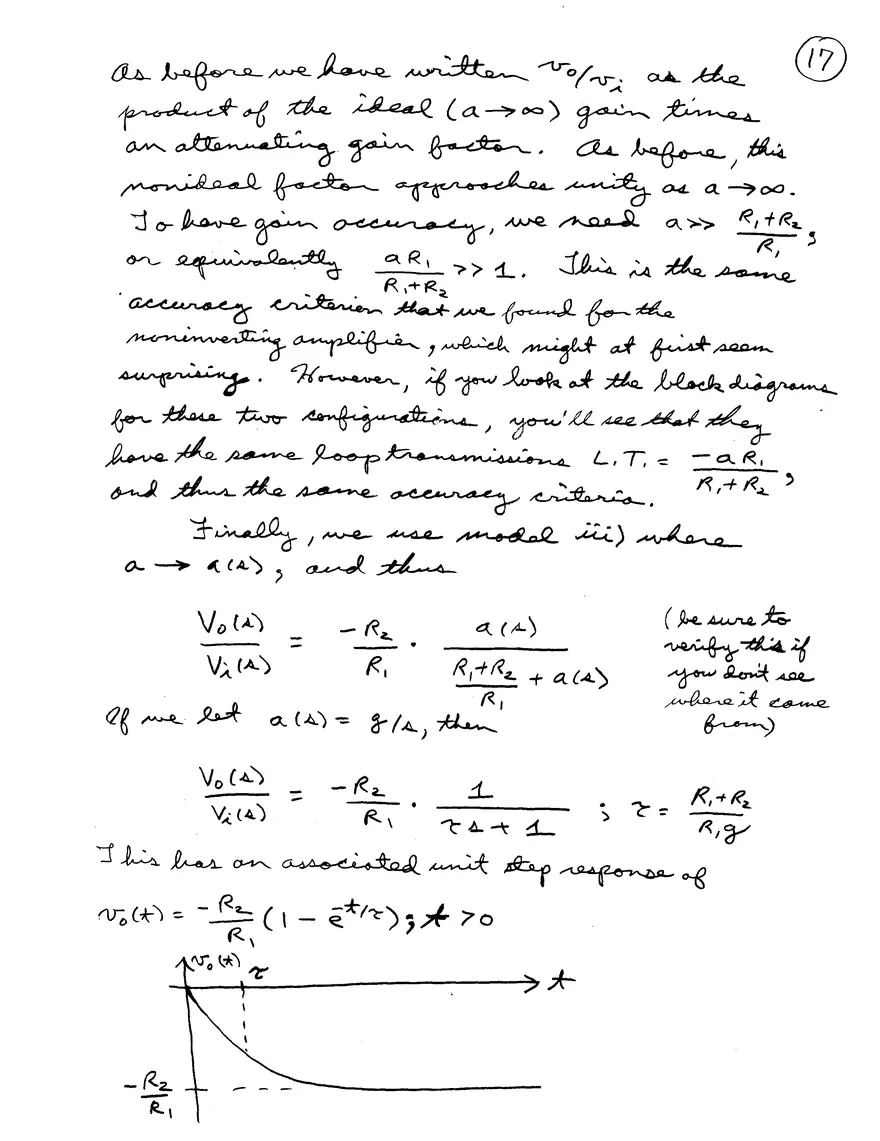 17
As before we have written vo/vi as the
product of the ideal (a→∞) gain times
an attenuating gain factor. As before, this
nonideal factor approaches unity as a→∞.
To have gain accuracy, we need a>> (R1+R2)/R1,
or equivalently aR1/(R1+R2) >> 1. This is the same
accuracy criterion that we found for the
noninverting amplifier, which might at first seem
surprising. However, if you look at the block diagrams
for these two configurations, you'll see that they
have the same loop transmissions L.T. = -aR1/(R1+R2),
and thus the same accuracy criteria.
Finally, we use model iii) where
a → a(s), and thus
Vo(s)/Vi(s) = -R2/R1 · a(s)/((R1+R2)/R1 + a(s)) (be sure to
verify this if
you don't see
where it came
from)
If we let a(s) = g/s, then
Vo(s)/Vi(s) = -R2/R1 · 1/(τs+1) ; τ = (R1+R2)/(R1g)
This has an associated unit step response of
vo(t) = -R2/R1 (1 - e^-t/τ); t > 0
vo(t) τ t
-R2/R1